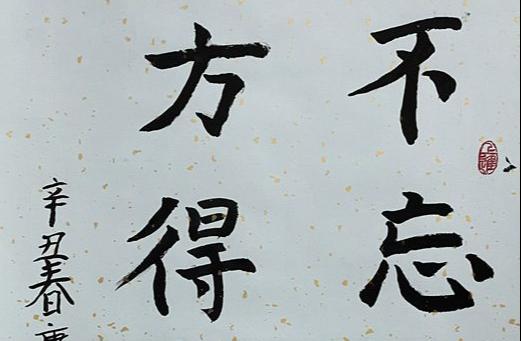 不忘
方得
辛丑春